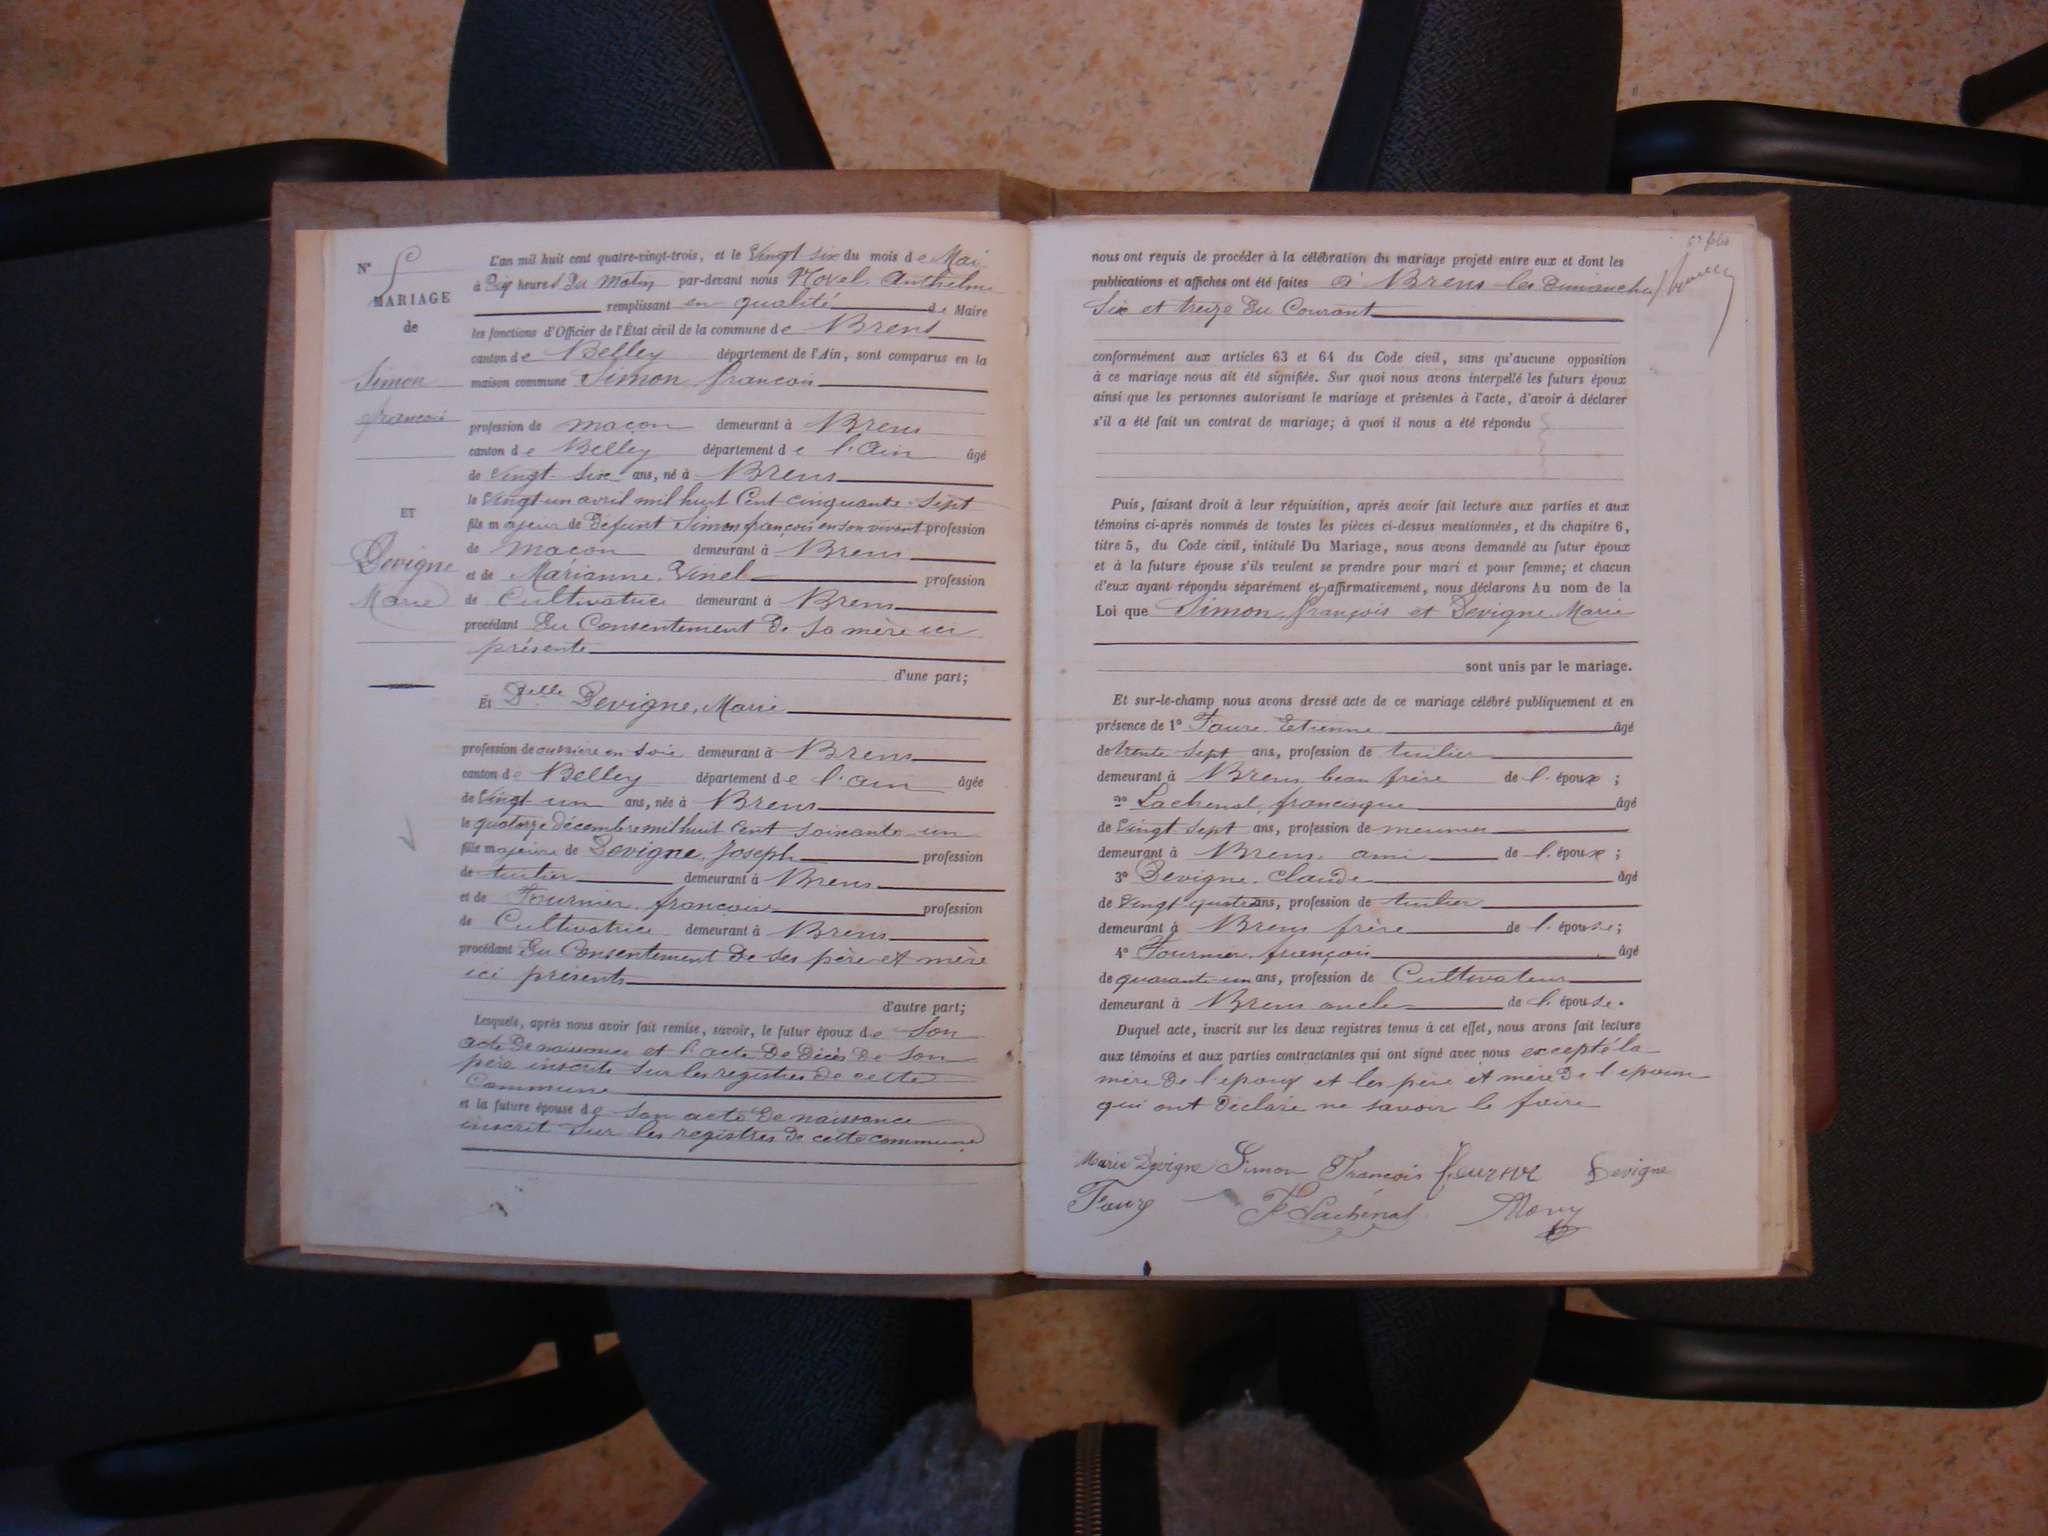 N° 5
MARIAGE
de
Simon
françois
ET
Devigne
Marie
L'an mil huit cent quatre-vingt-trois, et le Vingt six du mois de Mai
à Dix heures Du Matin par-devant nous Anthelme
remplissant en qualité de Maire
les fonctions d'Officier de l'État civil de la commune de Brens
canton de Belley département de l'Ain, sont comparus en la
maison commune Simon françois
profession de maçon demeurant à Brens
canton de Belley département de l'Ain âgé
de Vingt six ans, né à Brens
le Vingt un avril mil huit Cent cinquante-sept
fils majeur de Defunt Simon françois en son vivant profession
de macon demeurant à Brens
et de Marianne Vinel profession
de Cultivatrice demeurant à Brens
procédant Du Consentement De sa mère ici
présente
d'une part;
Et Delle Devigne, Marie
profession de ouvrière en soie demeurant à Brens
canton de Belley département de l'ain âgée
de Vingt un ans, née à Brens
le quatorze décembre mil huit cent soixante un
fille majeure de Devigne Joseph profession
de tuilier demeurant à Brens
et de Fournier françoise profession
de Cultivatrice demeurant à Brens
procédant Du Consentement De ses père et mère
ici présents
d'autre part;
Lesquels, après nous avoir fait remise, savoir, le futur époux de son
acte De naissance et l'acte De Décès De son
père inscrits sur les registres De cette
Commune
et la future épouse de son acte De naissance
inscrit sur les registres De cette commune
nous ont requis de procéder à la célébration du mariage projeté entre eux et dont les
publications et affiches ont été faites à Brens les Dimanches
Six et treize Du Courant
conformément aux articles 63 et 64 du Code civil, sans qu'aucune opposition
à ce mariage nous ait été signifiée. Sur quoi nous avons interpellé les futurs époux
ainsi que les personnes autorisant le mariage et présentes à l'acte, d'avoir à déclarer
s'il a été fait un contrat de mariage; à quoi il nous a été répondu
Puis, faisant droit à leur réquisition, après avoir fait lecture aux parties et aux
témoins ci-après nommés de toutes les pièces ci-dessus mentionnées, et du chapitre 6,
titre 5, du Code civil, intitulé Du Mariage, nous avons demandé au futur époux
et à la future épouse s'ils veulent se prendre pour mari et pour femme; et chacun
d'eux ayant répondu séparément et affirmativement, nous déclarons Au nom de la
Loi que Simon, françois et Devigne Marie
sont unis par le mariage.
Et sur-le-champ nous avons dressé acte de ce mariage célébré publiquement et en
présence de 1° Faure Etienne âgé
de trente sept ans, profession de tuilier
demeurant à Brens beau frère de l'époux;
2° Lachenal francisque âgé
de Vingt sept ans, profession de meunier
demeurant à Brens ami de l'époux;
3° Devigne claude âgé
de Vingt quatre ans, profession de tuilier
demeurant à Brens frère de l'épouse;
4° Fournier françois âgé
de quarante un ans, profession de Cultivateur
demeurant à Brens oncle de l'épouse.
Duquel acte, inscrit sur les deux registres tenus à cet effet, nous avons fait lecture
aux témoins et aux parties contractantes qui ont signé avec nous excepté la
mère De l'époux et les père et mère De l'épouse
qui ont Déclaré ne savoir le faire
Marie Devigne Simon François Devigne
Faure Lachenal